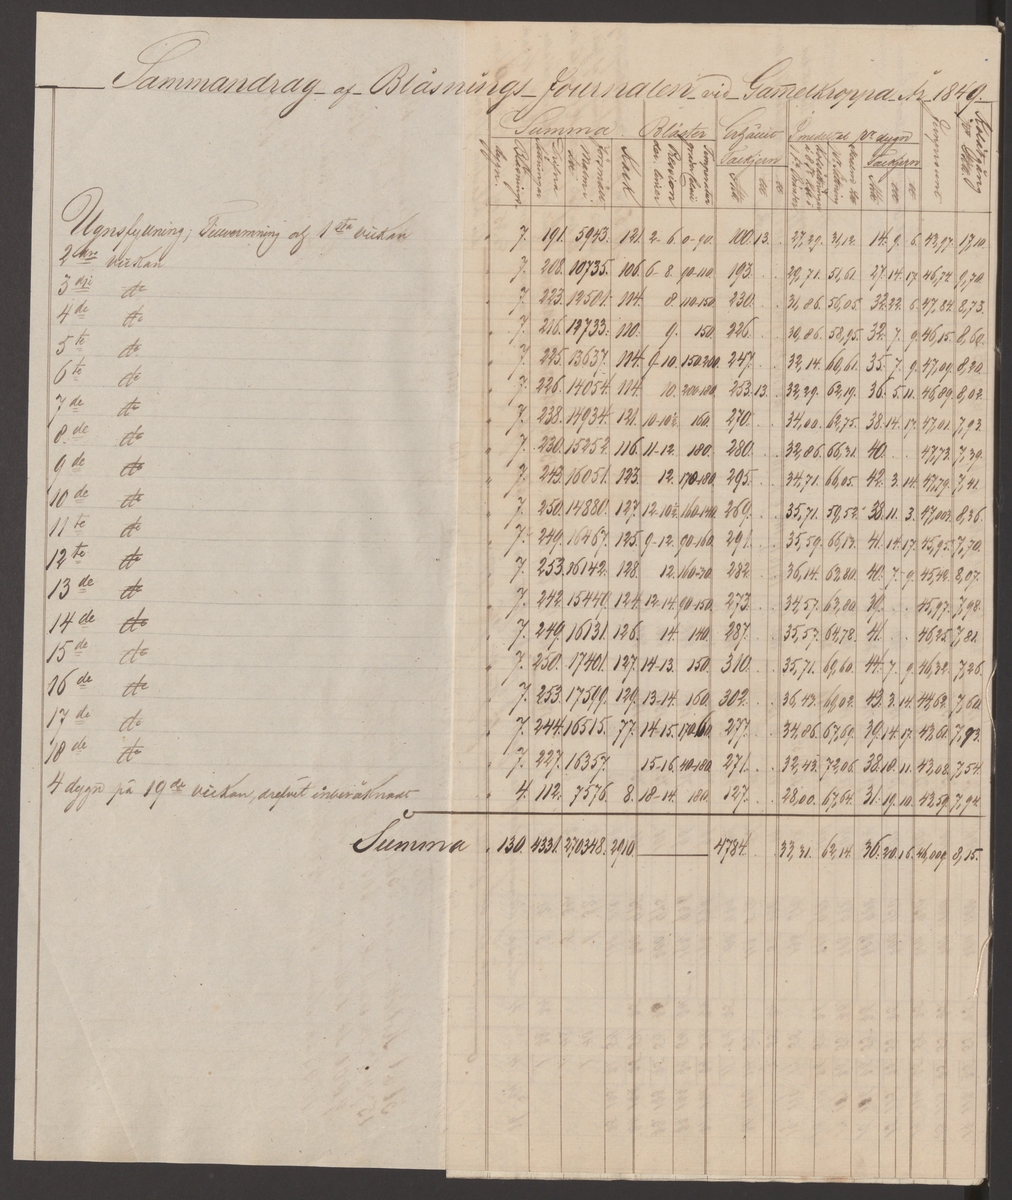 Sammandrag af Blåsnings Journalen vid Gammelkroppa År 1849.
Summa Bläster Erhållit I medeltal pr dygn
Tackjern Tackjern
Kalk Pression
Ugnsfyllning, Tillvarmning af 1sta veckan 7. 191. 5943. 121. 2-6. 0-90. 100. 13. 27,29. 31,12. 14. 9. 6. 43,97. 17,10.
2dra veckan 7. 208. 10735. 106. 6-8. 90-110. 193. 29,71. 51,61. 27. 14. 17. 46,74. 9,70.
3dje do 7. 223. 12501. 104. 8. 110-150. 230. 31,86. 56,05. 32. 22. 6. 47,84. 8,73.
4de do 7. 216. 12733. 110. 9. 150. 226. 30,86. 58,95. 32. 7. 9. 46,15. 8,60.
5te do 7. 225. 13637. 104. 9-10. 150-200. 247. 32,14. 60,61. 35. 7. 9. 47,09. 8,20.
6te do 7. 226. 14054. 114. 10. 200-180. 253. 13. 32,29. 62,19. 36. 5. 11. 46,89. 8,02.
7de do 7. 238. 14934. 121. 10-10½. 160. 270. 34,00. 62,75. 38. 14. 17. 47,01. 7,93.
8de do 7. 230. 15252. 116. 11-12. 180. 280. 32,86. 66,31. 40. 47,73. 7,39.
9de do 7. 243. 16051. 123. 12. 170-180. 295. 34,71. 66,05. 42. 3. 14. 47,79. 7,41.
10de do 7. 250. 14880. 127. 12-10½. 160-140. 269. 35,71. 59,52. 38. 11. 3. 47,003. 8,36.
11te do 7. 249. 16467. 125. 9-12. 90-160. 291. 35,59. 66,13. 41. 14. 17. 45,95. 7,70.
12te do 7. 253. 16142. 128. 12. 160-70. 282. 36,14. 63,80. 40. 7. 9. 45,42. 8,07.
13de do 7. 242. 15440. 124. 12-14. 90-150. 273. 34,57. 63,80. 39. 45,97. 7,98.
14de do 7. 249. 16131. 126. 14. 140. 287. 35,57. 64,78. 41. 46,25. 7,81.
15de do 7. 250. 17401. 127. 14-13. 150. 310. 35,71. 69,60. 44. 7. 9. 46,32. 7,26.
16de do 7. 253. 17599. 129. 13-14. 160. 302. 36,43. 69,02. 43. 3. 14. 44,62. 7,60.
17de do 7. 244. 16515. 77. 14-15. 170-60. 277. 34,86. 67,69. 39. 14. 17. 43,60. 7,93.
18de do 7. 227. 16357. 15-16. 40-180. 271. 32,43. 72,06. 38. 10. 11. 43,08. 7,54.
4 dygn på 19de veckan, drefvet inberäknadt 4. 112. 7576. 8. 18-14. 180. 127. 28,00. 67,64. 31. 19. 10. 42,59. 7,94.
Summa 130. 4331. 270348. 2910. 4784. 33,31. 62,14. 36. 20. 16. 46,009. 8,15.